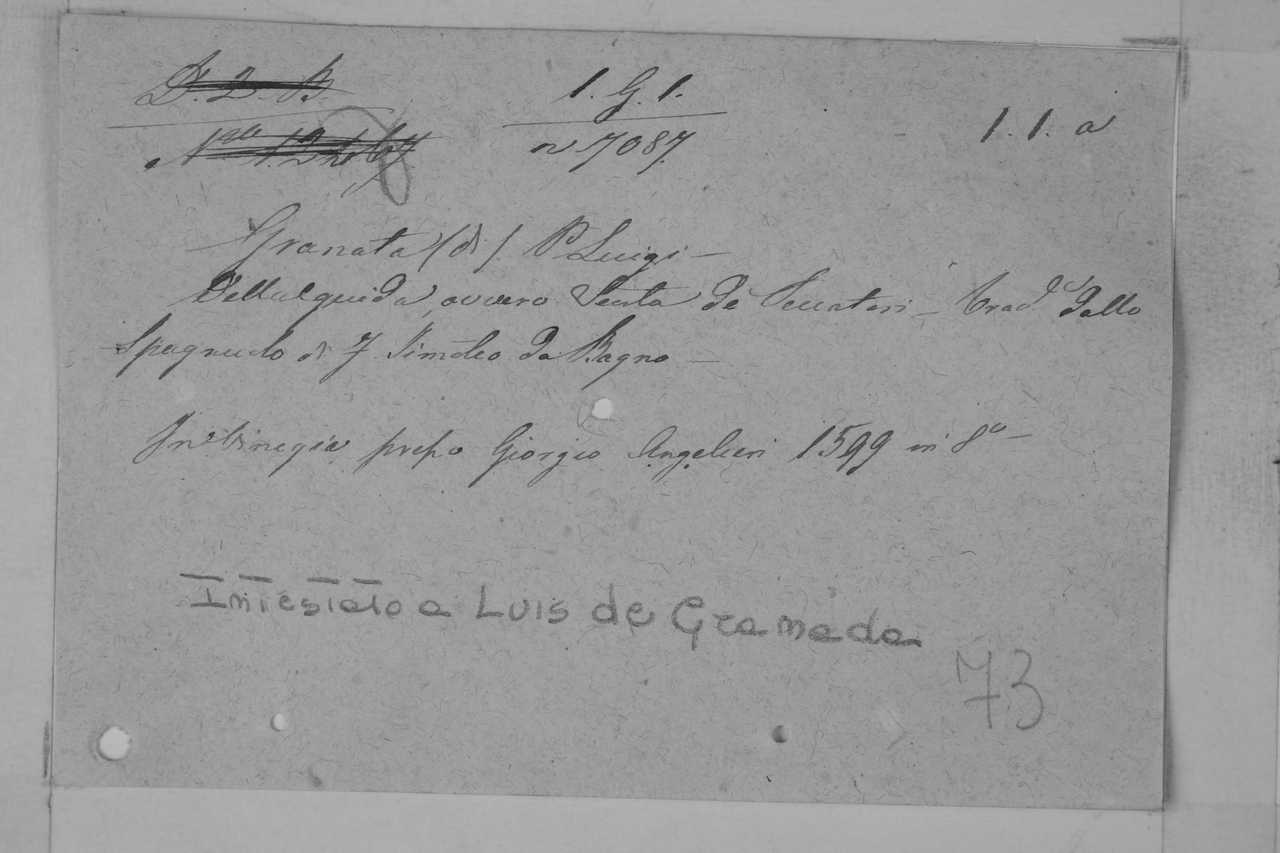 D. 2. B. 1. G. 1. 1. 1. a
Nro n 7087.
Granata (di) P Luigi —
Della guida, ovvero Scorta de Peccatori — Trad.a dallo
Spagnuolo di F Timoteo da Bagno —
In Vinegia presso Giorgio Angelieri 1599 in 8o —
Intestato a Luis de Granada
73